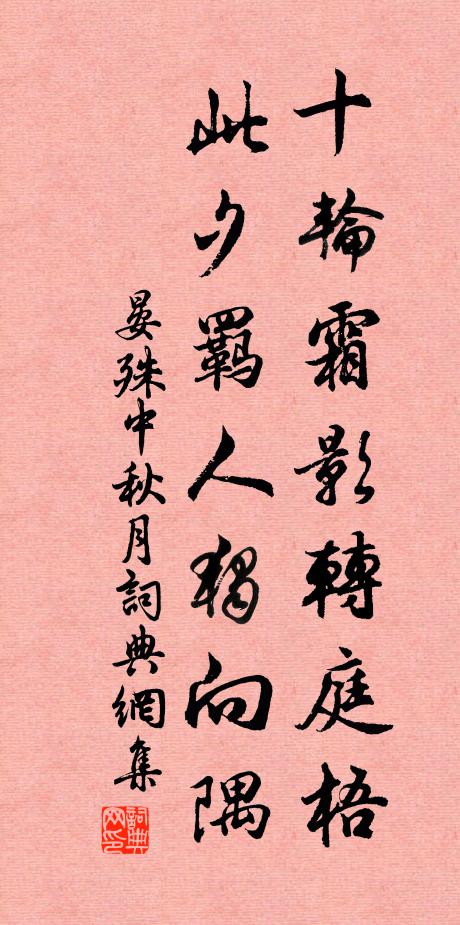 十輪霜影轉庭梧
此夕羈人獨向隅
晏殊中秋月詞典網集
詞典網印